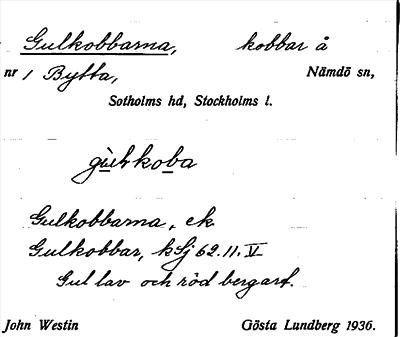 Gulkobbarna, kobbar å
nr 1 Bytta, Nämdö sn,
Sotholms hd, Stockholms l.
gulkoba
Gulkobbarna, ek.
Gulkobbar, kSj 62.11.V
Gul lav och röd bergart.
John Westin Gösta Lundberg 1936.